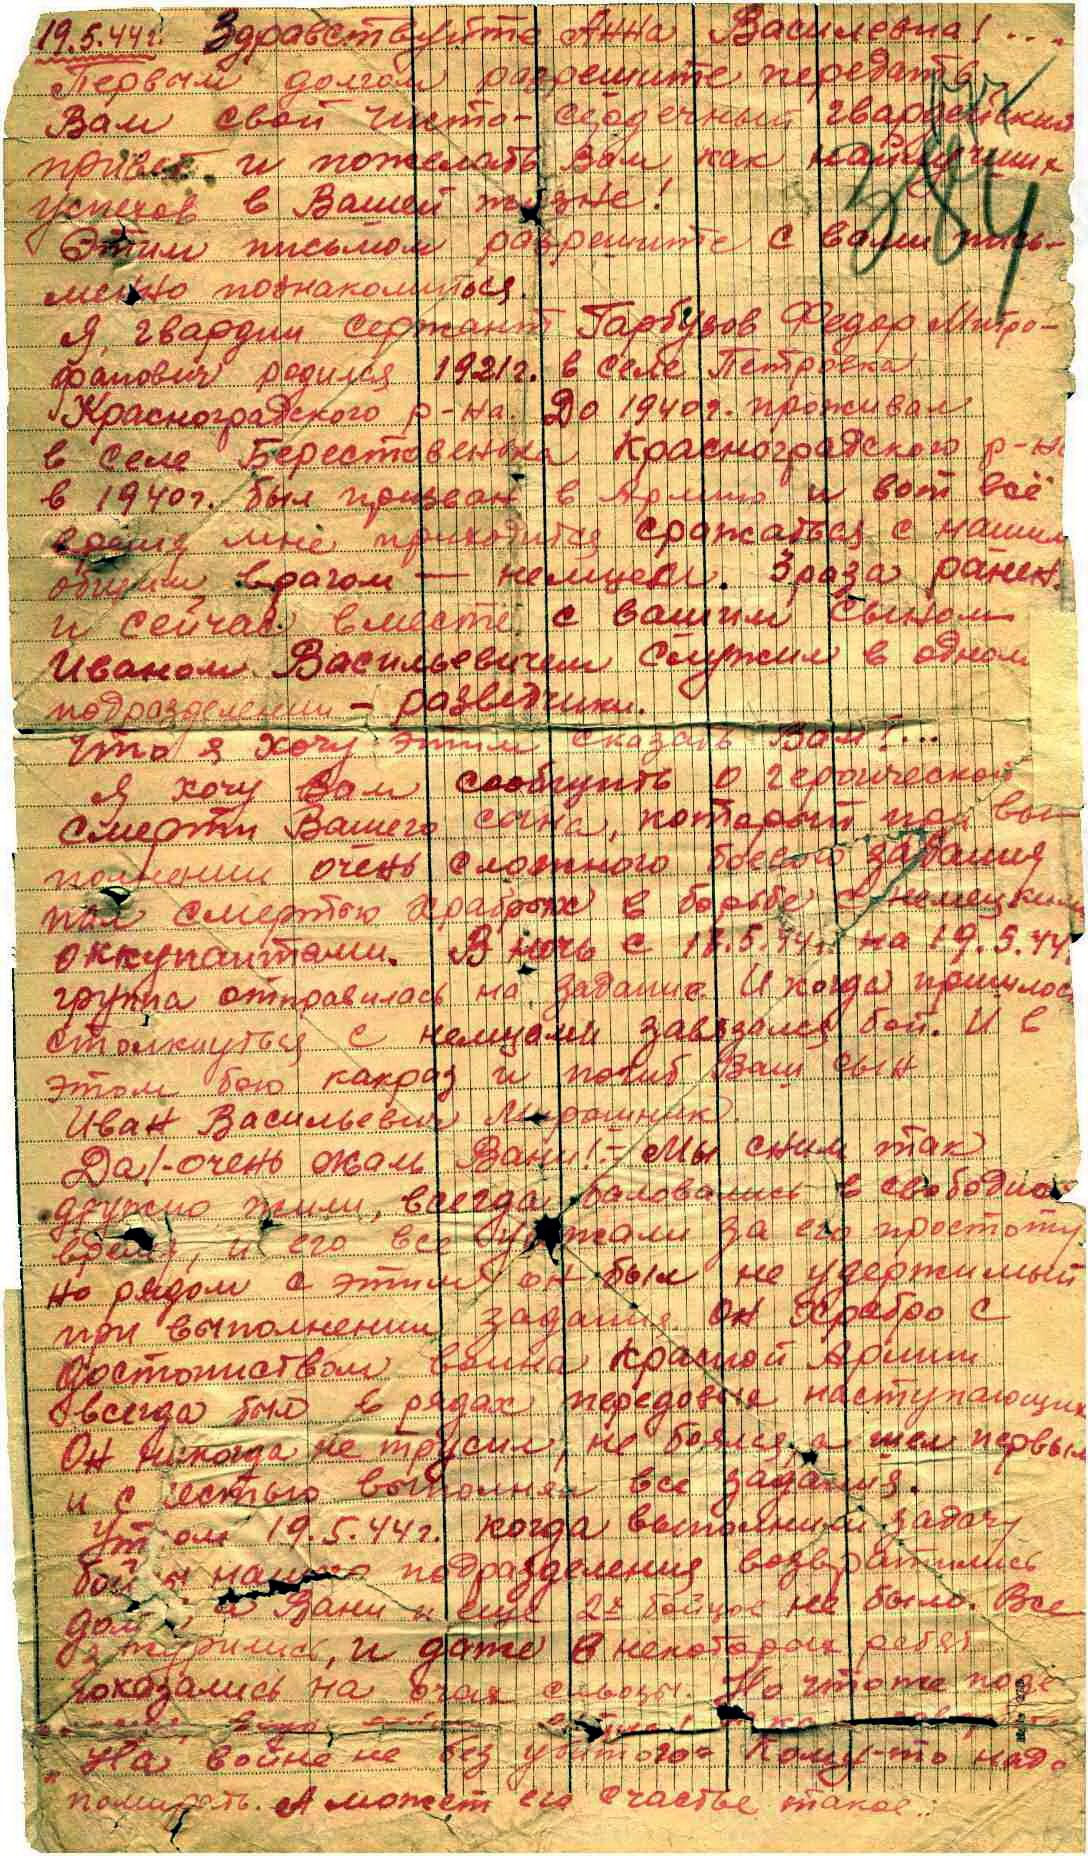 19.5.44г. Здравствуйте Анна Василевна!...
Первым долгом разрешите передать
Вам свой чисто-сердечный гвардейский
привет и пожелать Вам как найлучших
успехов в Вашей жизне!
Этим письмом разрешите с вами пись-
менно познакомиться.
Я, гвардии сержант Гарбузов Федор Митро-
фанович родился 1921г. в селе Петровка
Красноградского р-на. До 1940г. проживал
в селе Берестовенька Красноградского р-на
в 1940г. был призван в Армию и вот всё
время мне приходится сражаться с нашим
общим врагом — немцем. 3 раза ранен.
и сейчас вместе с вашим сыном
Иваном Васильевичем служил в одном
подразделении - разведчики.
Что я хочу этим сказать Вам?...
Я хочу Вам сообщить о героической
смерти Вашего сына, который при вы-
полнении очень сложного боевого задания
пал смертью храбрых в борьбе с немецкими
оккупантами. В ночь с 18.5.44г. на 19.5.44
группа отправилась на задание. И когда пришлось
столкнуться с немцами завязался бой. И в
этом бою какраз и погиб Ваш сын
Иван Васильевич Мирошник.
Да!-очень жаль Вани!- Мы сним так
дружно жили, всегда баловались в свободное
время, и его все уважали за его простоту
но рядом с этим он был не удержимый
при выполнении задания. Он храбро с
достоинством воина Красной Армии
всегда был в рядах передовых наступающих
Он никогда не трусил, не боялся, а шел первым
и с честью выполнял все задания.
Утром 19.5.44г. когда выполнили задачу
бойцы нашего подразделения возвратились
дом а Вани и еще 2х бойцов не было. Все
и даже в некоторых ребят
показались на очах слёзы. Но что же
На войне не без убитого. Кому-то надо
помирать. А может его счастье такое..
384